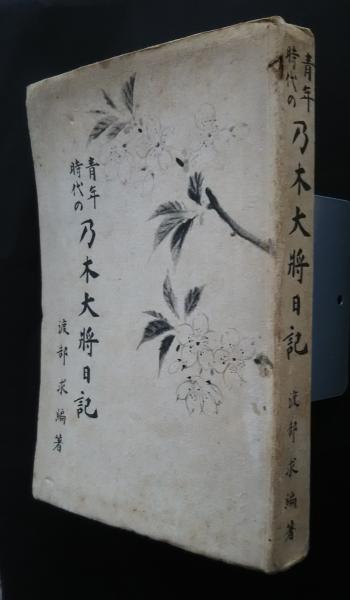 青年
時代の
乃木大將日記
渡部求編著
青年
時代の
乃木大將日記
渡部求編著